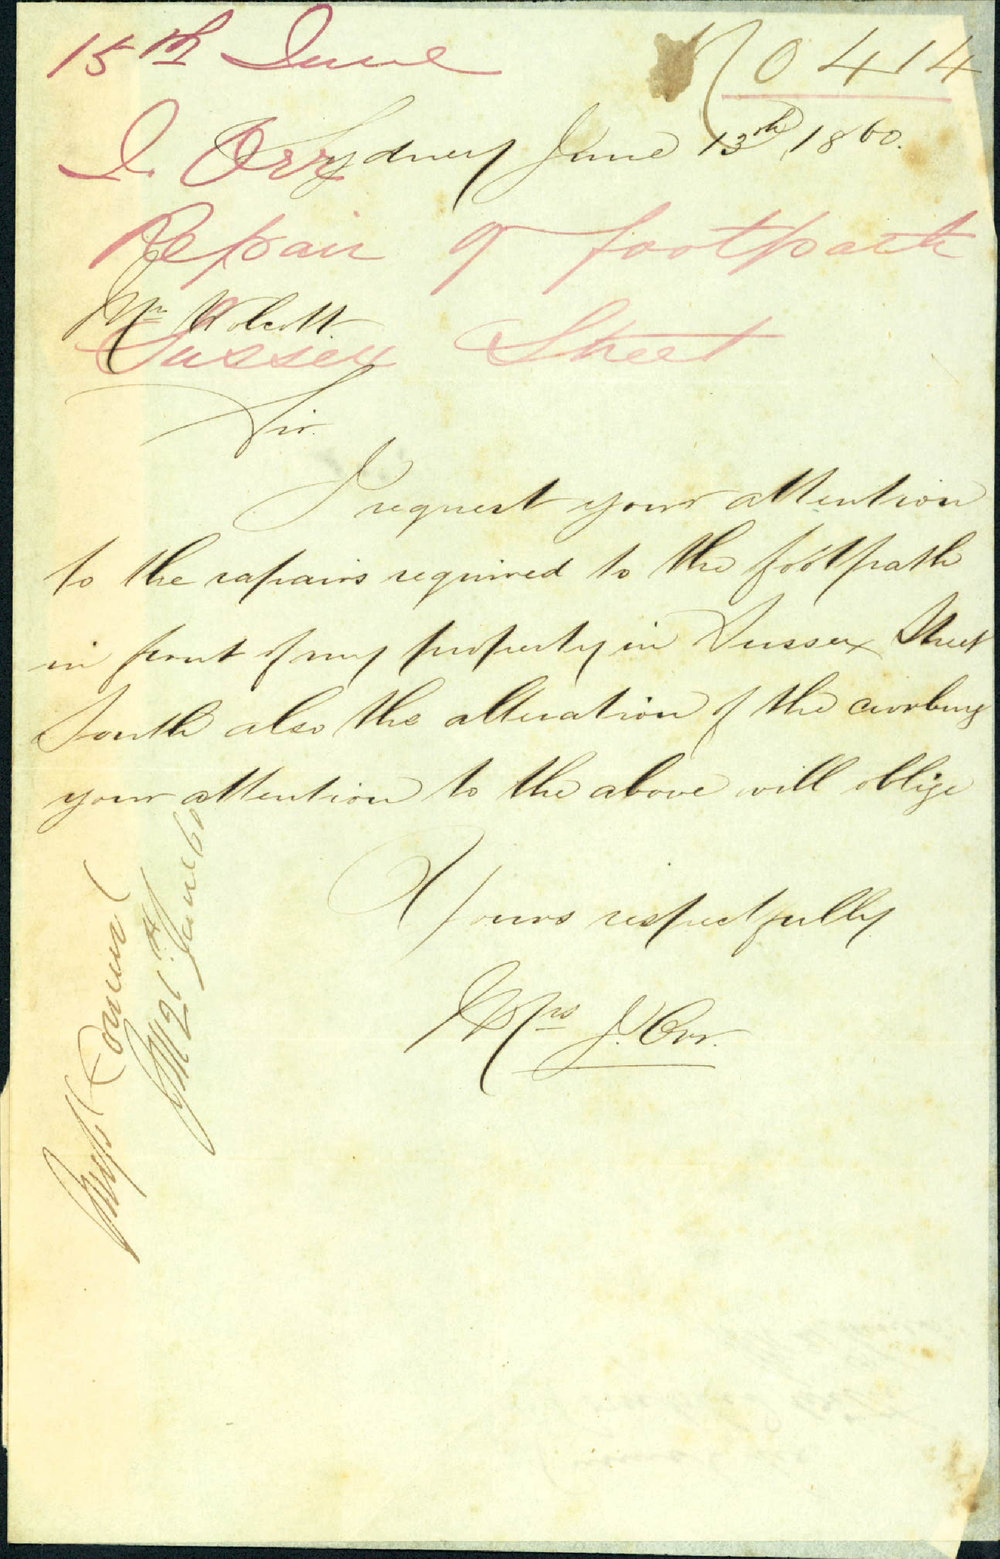 15th June
No 414
J. Orr
Sydney June 13th 1860.
Repair of footpath
Mr Wolcott
Sussex Street
Sir.
I request your attention
to the rapairs required to the footpath
in front of my property in Sussex Street
South also the alteration of the curbing
your attention to the above will oblige
Yours respectfully
Mrs J. Orr.
21st June 60